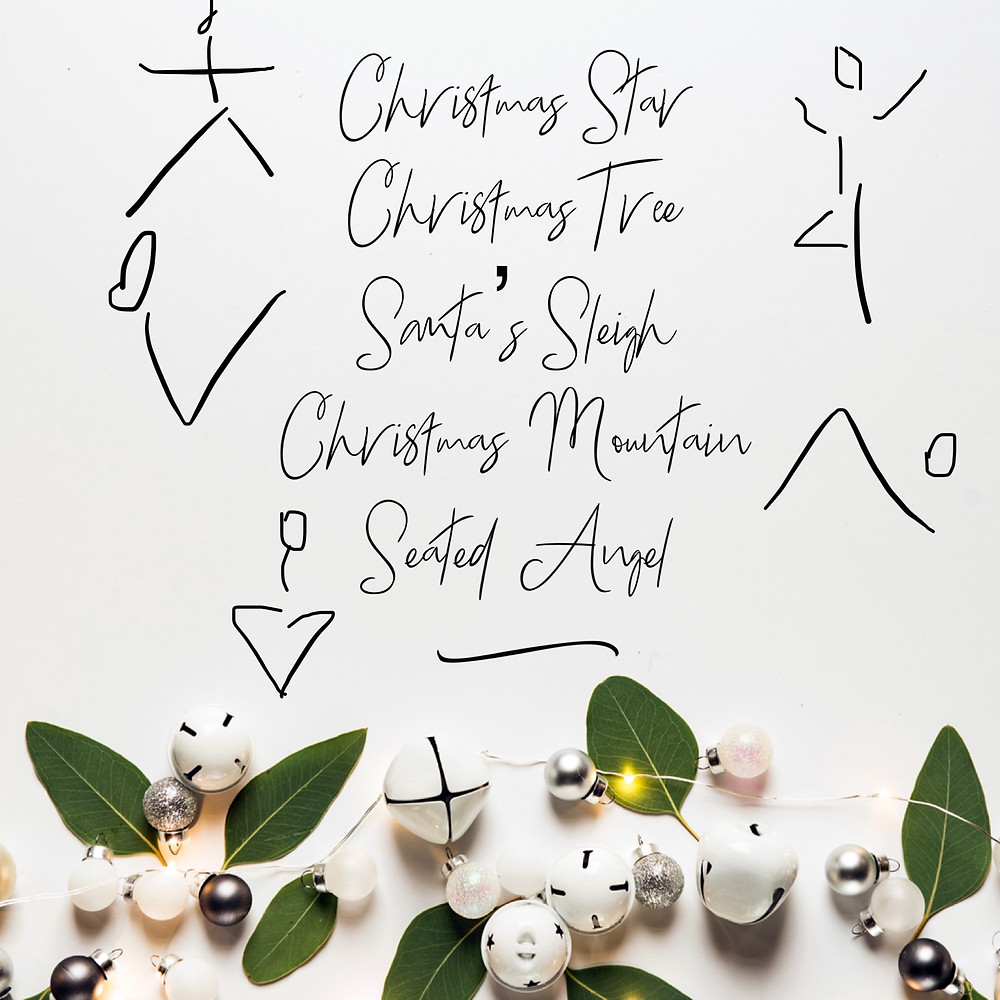 Christmas Star
Christmas Tree
Santa's Sleigh
Christmas Mountain
Seated Angel